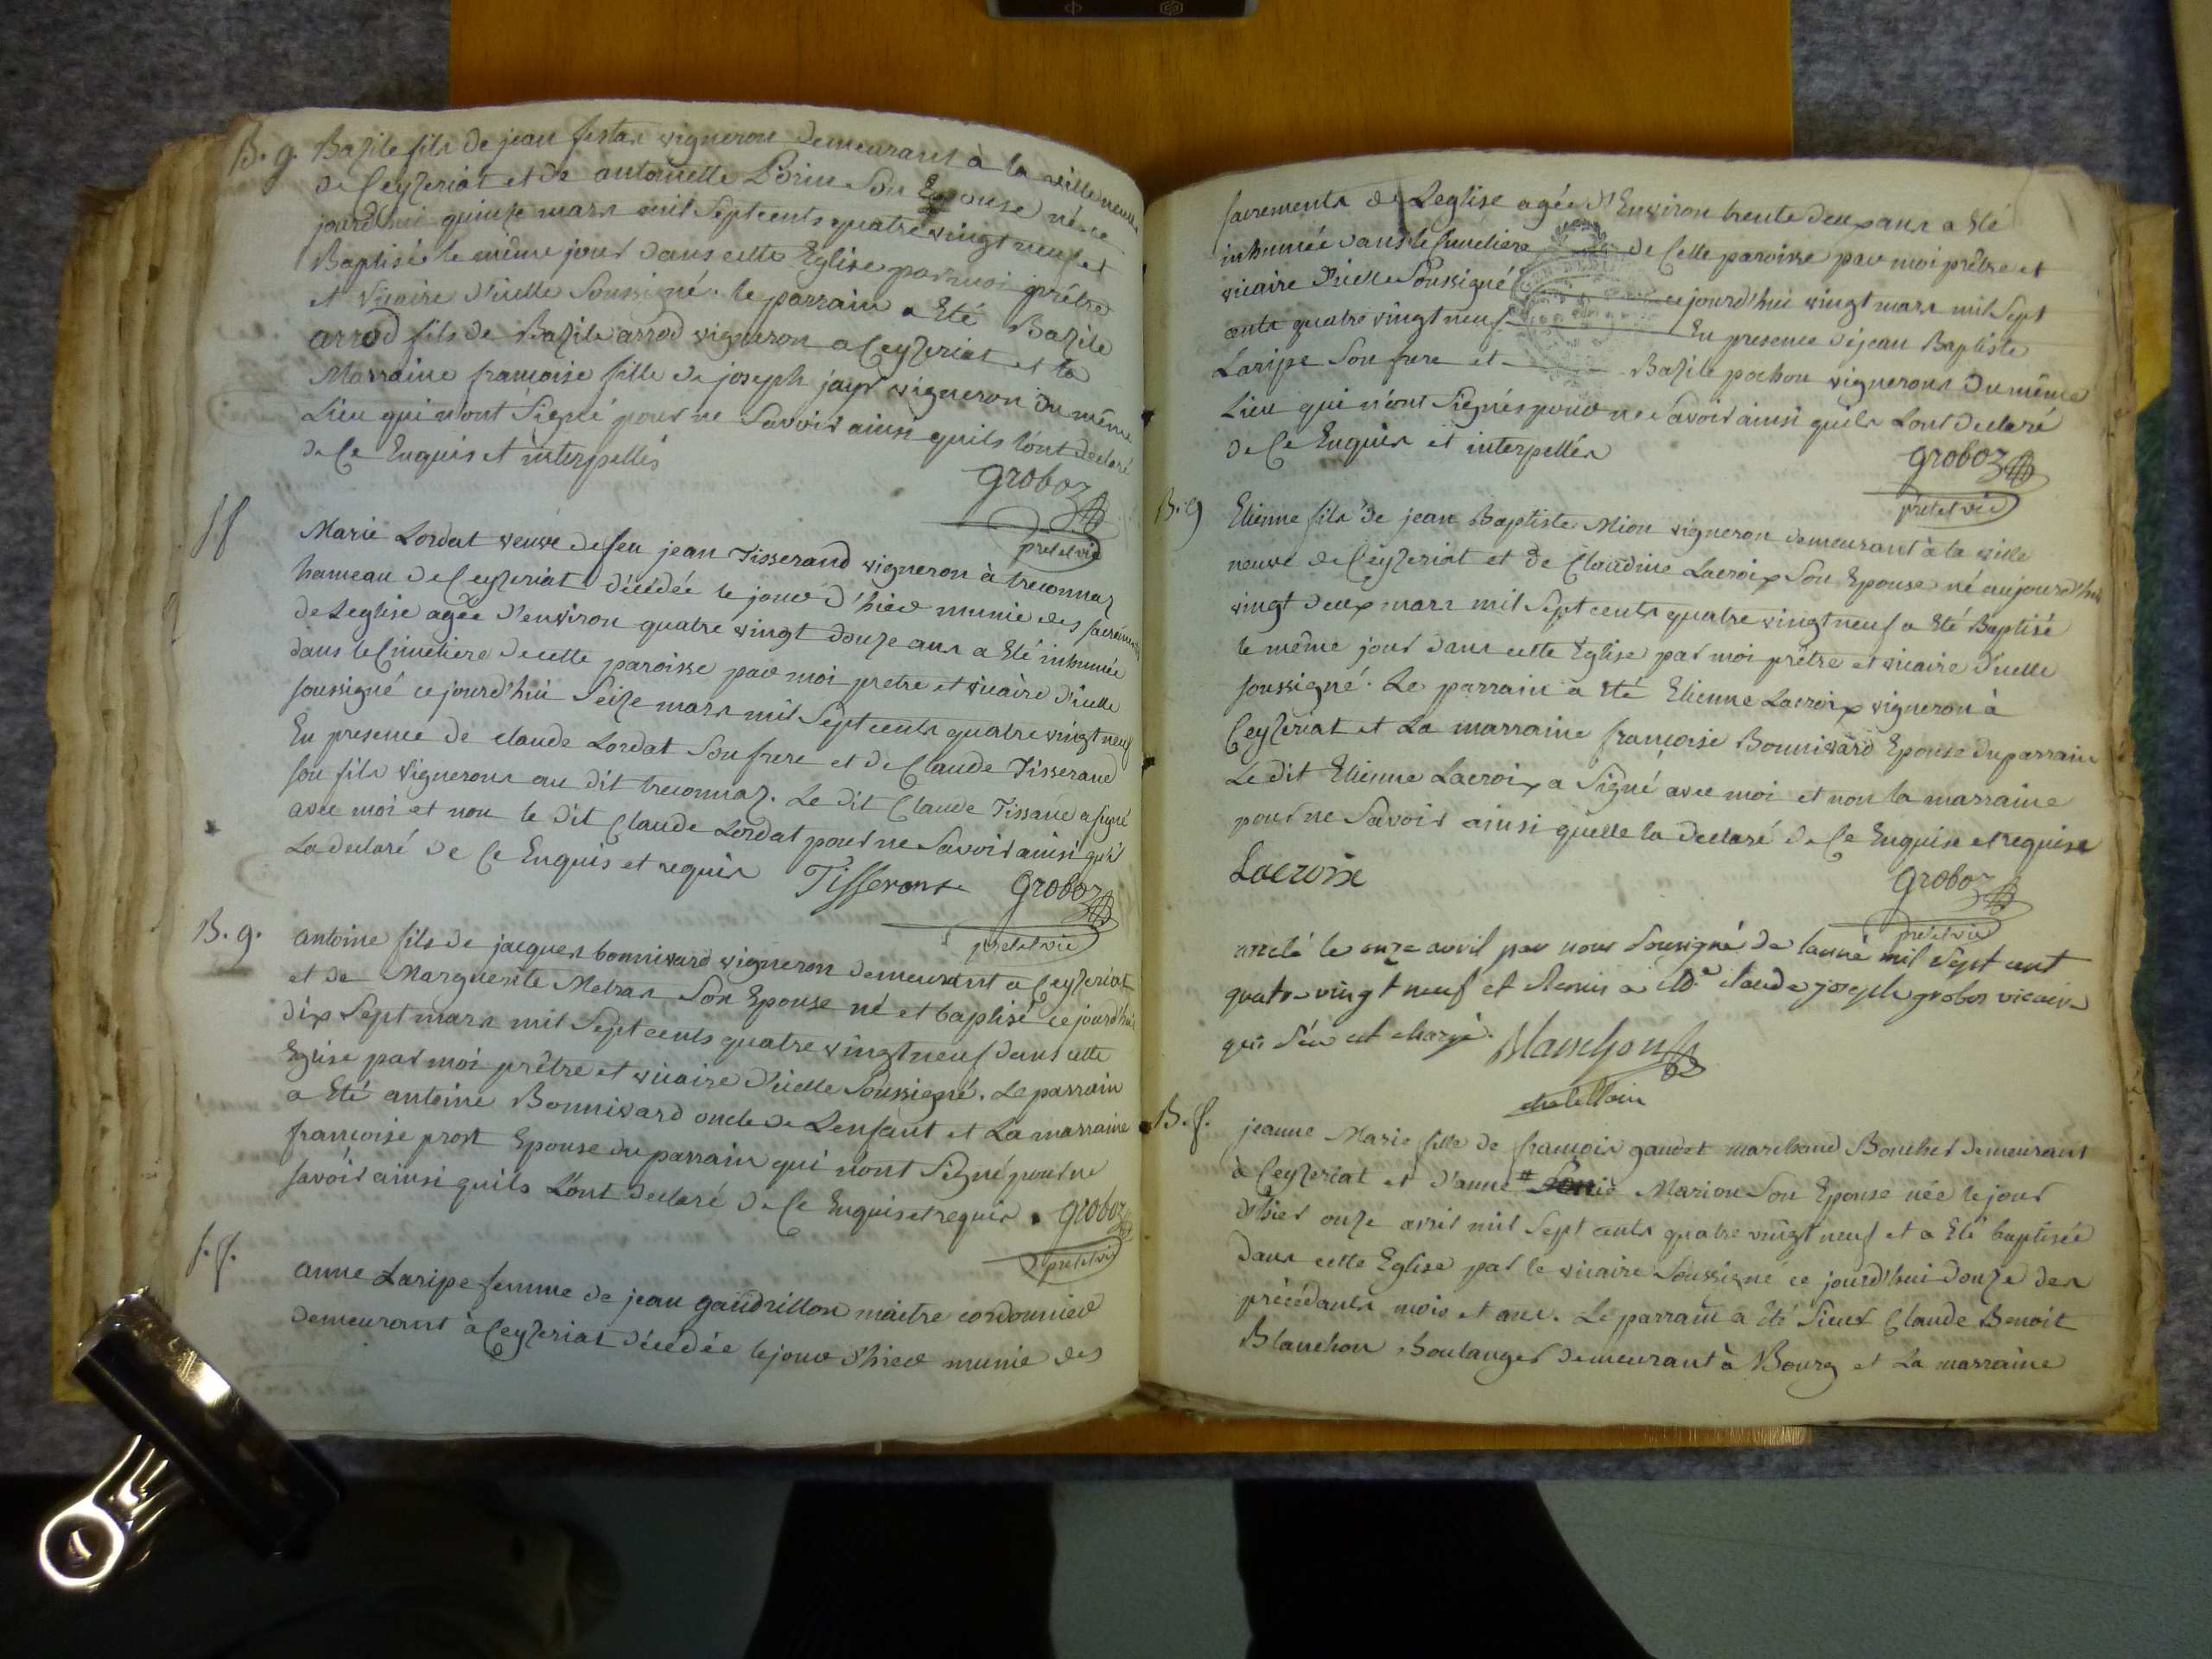 B. g. Bazile fils de jean festas vigneron demeurant à la ville neuve
de Ceyzeriat et de antoinette Pirin son Epouse né ce
jourd'hui quinze mars mil sept cents quatre vingt neuf et
Baptisé le même jour dans cette Eglise par moi prêtre
et vicaire d'icelle soussigné. le parrain a Eté Bazile
arrod fils de Bazile arrod vigneron a Ceyzeriat et la
Marraine francoise fille de joseph jayr vigneron du même
Lieu qui n'ont signé pour ne savoir ainsi quils l'ont declaré
de ce Enquis et interpellés
groboz
pret et vic
s. f
Marie Lordat veuve de feu jean Tisserand vigneron à treconnaz
hameau de Ceyzeriat décédée le jour d'hier munie des sacrements
de Leglise agée d'environ quatre vingt douze ans a Eté inhumée
dans le Cimetiere de cette paroisse par moi pretre et vicaire d'icelle
soussigné ce jourd'hui seize mars mil sept cents quatre vingt neuf
En presence de claude Lordat son frere et de Claude Tisserand
son fils vignerons au dit treconnaz. Le dit Claude Tissand a signé
avec moi et non le dit Claude Lordat pour ne savoir ainsi qu'il
La declaré de ce Enquis et requis Tisserant groboz
pret et vic
B. g. antoine fils de jacques bonnivard vigneron demeurant a Ceyzeriat
et de Marguerite Metras son Epouse né et baptisé ce jourd'hui
dix sept mars mil sept cents quatre vingt neuf dans cette
Eglise par moi prêtre et vicaire d'icelle soussigné. Le parrain
a Eté antoine Bonnivard oncle de Lenfant et La marraine
francoise prost Epouse du parrain qui n'ont signé pour ne
savoir ainsi quils l'ont declaré de ce Enquis et requis. groboz
pret et vic
s. f.
anne Laripe femme de jean gaudrillon maitre cordonnier
demeurant à Ceyzeriat décédée le jour d'hier munie des
sacrements de Leglise agée d'Environ trente deux ans a Eté
inhumée dans le Cimetiere de cette paroisse par moi prêtre et
vicaire d'icelle soussigné ce jourd'hui vingt mars mil sept
cents quatre vingt neuf En presence de jean Baptiste
Laripe son frere et Bazile pochon vignerons du même
Lieu qui n'ont signés pour ne savoir ainsi quils Lont declaré
de ce Enquis et interpellés
groboz
pret et vic
B. g Etienne fils de jean Baptiste Mion vigneron demeurant à la ville
neuve de Ceyzeriat et de Claudine Lacroix son Epouse né aujourd'hui
vingt deux mars mil sept cents quatre vingt neuf a Eté Baptisé
le même jour dans cette Eglise par moi prêtre et vicaire d'icelle
soussigné. Le parrain a Eté Etienne Lacroix vigneron à
Ceyzeriat et La marraine francoise Bonnivard Epouse du parrain
Le dit Etienne Lacroix a signé avec moi et non la marraine
pour ne savoir ainsi quelle la declaré de ce Enquise et requise
Lacroix groboz
pret et vic
arreté le onze avril par nous soussigné de lanné mil sept cent
quatre vingt neuf et Remis a Me claude joseph grobos vicaire
qui s'en est chargé.
chatellain
B. f. jeanne Marie fille de francois gaudet marchand Boucher demeurant
à Ceyzeriat et d'anne # Marion son Epouse née le jour
d'hier onze avril mil sept cents quatre vingt neuf et a Eté baptisée
dans cette Eglise par le vicaire soussigné ce jourd'hui douze des
précédants mois et ans. Le parrain a été sieur Claude Benoit
Blanchon Boulanger demeurant à Bourg et La marraine